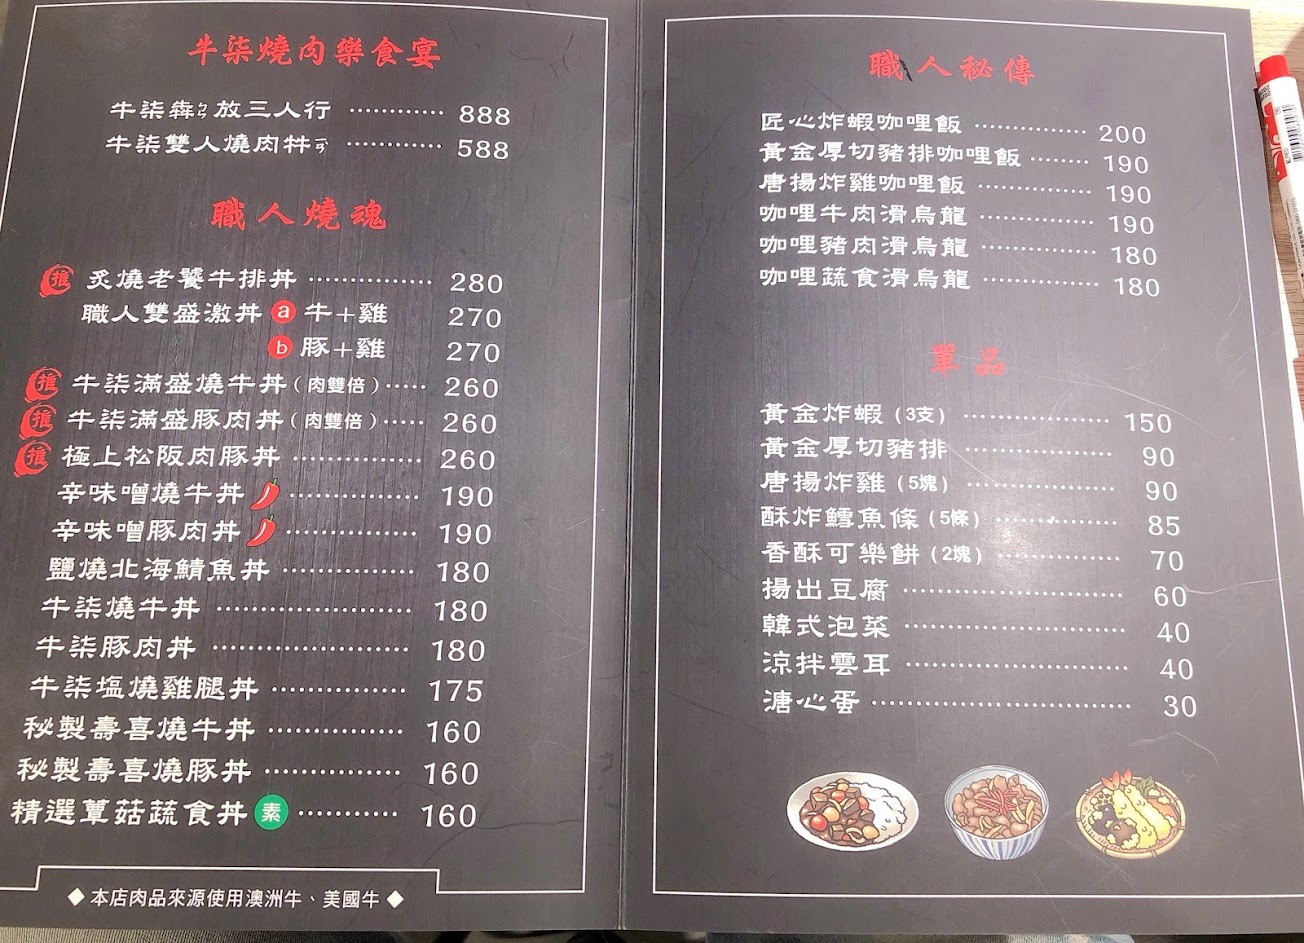 牛柒燒肉樂食宴
牛柒犇ㄅㄣ放三人行 ………… 888
牛柒雙人燒肉丼 ………… 588
職人燒魂
推 炙燒老饕牛排丼 …………… 280
職人雙盛激丼 a 牛+雞 270
b 豚+雞 270
推 牛柒滿盛燒牛丼(肉雙倍)…… 260
推 牛柒滿盛豚肉丼(肉雙倍)…… 260
推 極上松阪肉豚丼 …………… 260
辛味噌燒牛丼 …………… 190
辛味噌豚肉丼 …………… 190
鹽燒北海鯖魚丼 …………… 180
牛柒燒牛丼 …………… 180
牛柒豚肉丼 …………… 180
牛柒塩燒雞腿丼 …………… 175
秘製壽喜燒牛丼 …………… 160
秘製壽喜燒豚丼 …………… 160
精選蕈菇蔬食丼 素 ………… 160
◆ 本店肉品來源使用澳洲牛、美國牛 ◆
職人秘傳
匠心炸蝦咖哩飯 …………… 200
黃金厚切豬排咖哩飯 ……… 190
唐揚炸雞咖哩飯 …………… 190
咖哩牛肉滑烏龍 …………… 190
咖哩豬肉滑烏龍 …………… 180
咖哩蔬食滑烏龍 …………… 180
單品
黃金炸蝦(3支) …………… 150
黃金厚切豬排 …………… 90
唐揚炸雞(5塊) …………… 90
酥炸鱈魚條(5條) …………… 85
香酥可樂餅(2塊) …………… 70
揚出豆腐 …………… 60
韓式泡菜 …………… 40
涼拌雲耳 …………… 40
溏心蛋 …………… 30